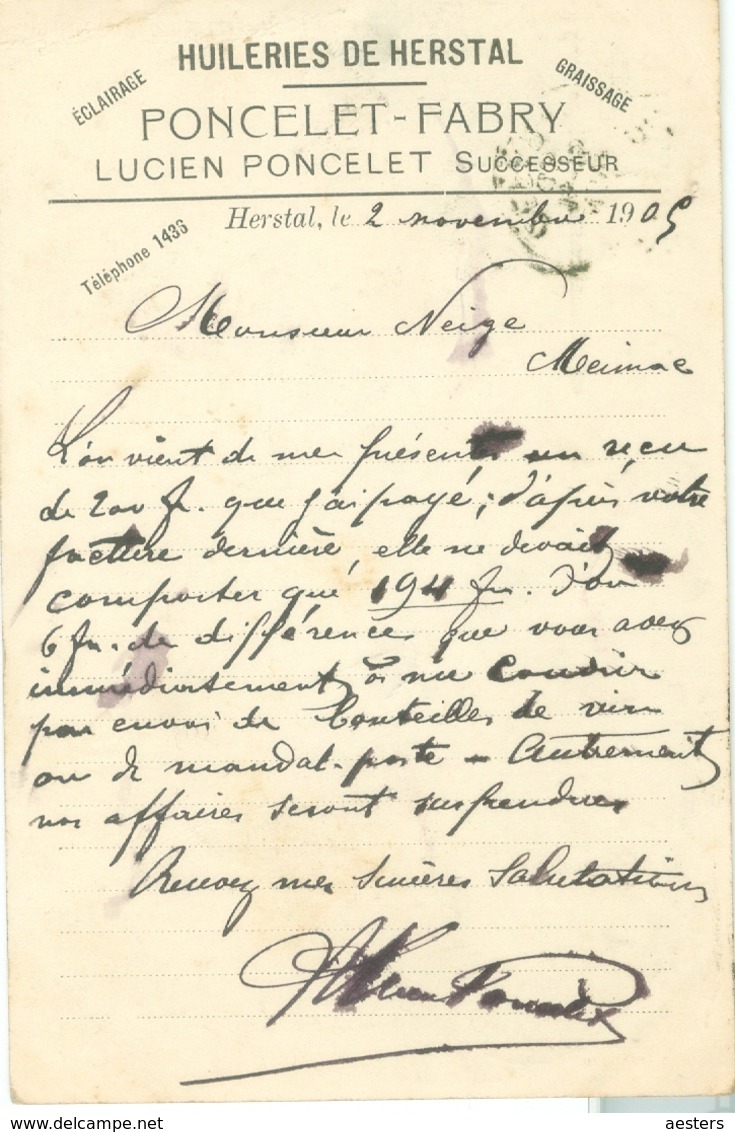 HUILERIES DE HERSTAL
ÉCLAIRAGE
GRAISSAGE
PONCELET-FABRY
LUCIEN PONCELET SUCCESSEUR
Téléphone 1436
Herstal, le 2 novembre 1905
Monsieur Neige
Meimac
L'on vient de me présenter un reçu
de 200 fr. que j'ai payé; d'après votre
facture dernière, elle ne devait
comporter que 194 fr. d'où
6 fr. de différence que vous avez
immédiatement à me
par envoi de bouteilles de vin
ou de mandat-poste - Autrement
nos affaires seront suspendues
Recevez mes sincères salutations
Lucien Poncelet
aesters